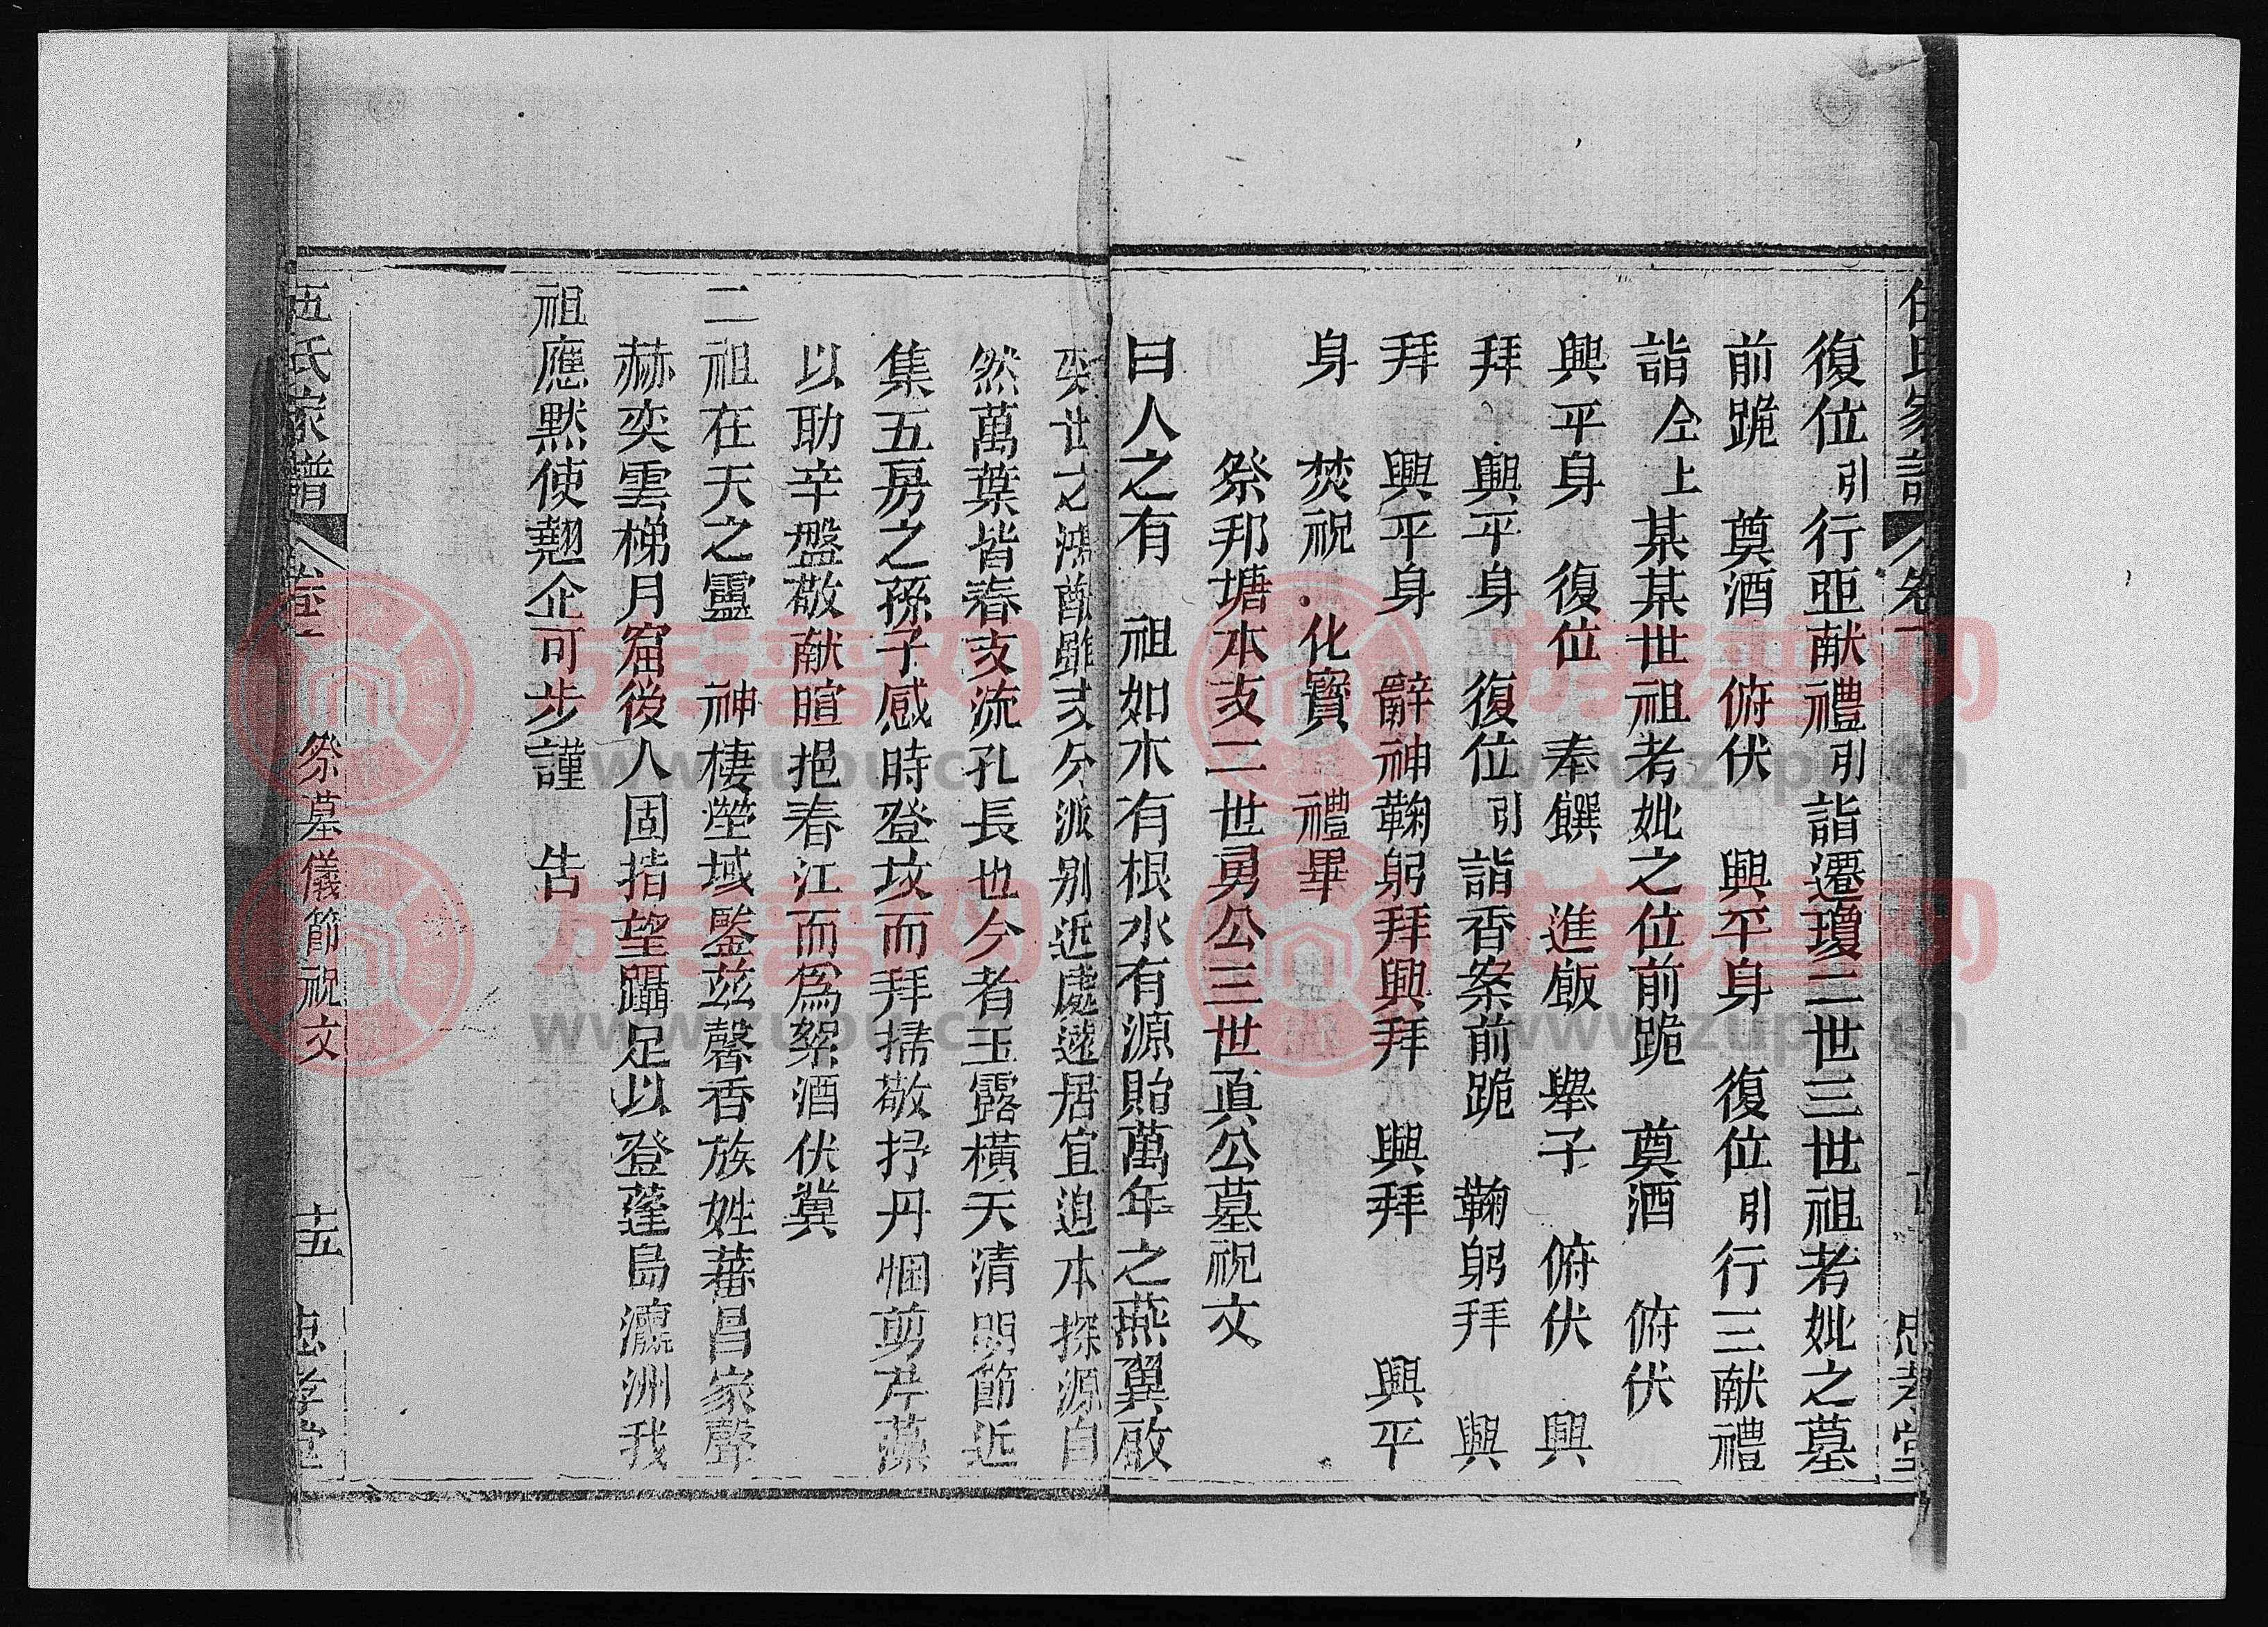 復位引行亞献禮引詣遷瓊二世三世祖考妣之墓
前跪　奠酒　俯伏　興平身　復位引行三献禮
詣仝上某某世祖考妣之位前跪　奠酒　俯伏
興平身　復位　奉饌　進飯　舉子　俯伏　興
拜　興平身　復位引詣香案前跪　鞠躬拜　興
拜　興平身　辭神鞠躬拜興拜　興拜　興平
身　焚祝　化寶　禮畢
祭邦塘本支二世勇公三世真公墓祝文
曰人之有　祖如木有根水有源貽萬年之燕翼啟
奕世之鴻猷雖支分派别近處遠居宜追本探源自
然萬葉皆春支流孔長也今者玉露橫天清明節近
集五房之孫子感時登坟而拜掃敬抒丹悃剪芹藻
以助辛盤敬献暄挹春江而爲絮酒伏冀
二祖在天之靈　神棲塋域鑒兹馨香族姓蕃昌家聲
赫奕雲梯月窟後人固指望躡足以登蓬島瀛洲我
祖應默使翹企可步謹　告
伍氏家譜　卷一　祭墓儀節祝文　十五　忠孝堂
族譜网
www.zupu.cn
族譜网
www.zupu.cn
族譜网
www.zupu.cn
族譜网
www.zupu.cn